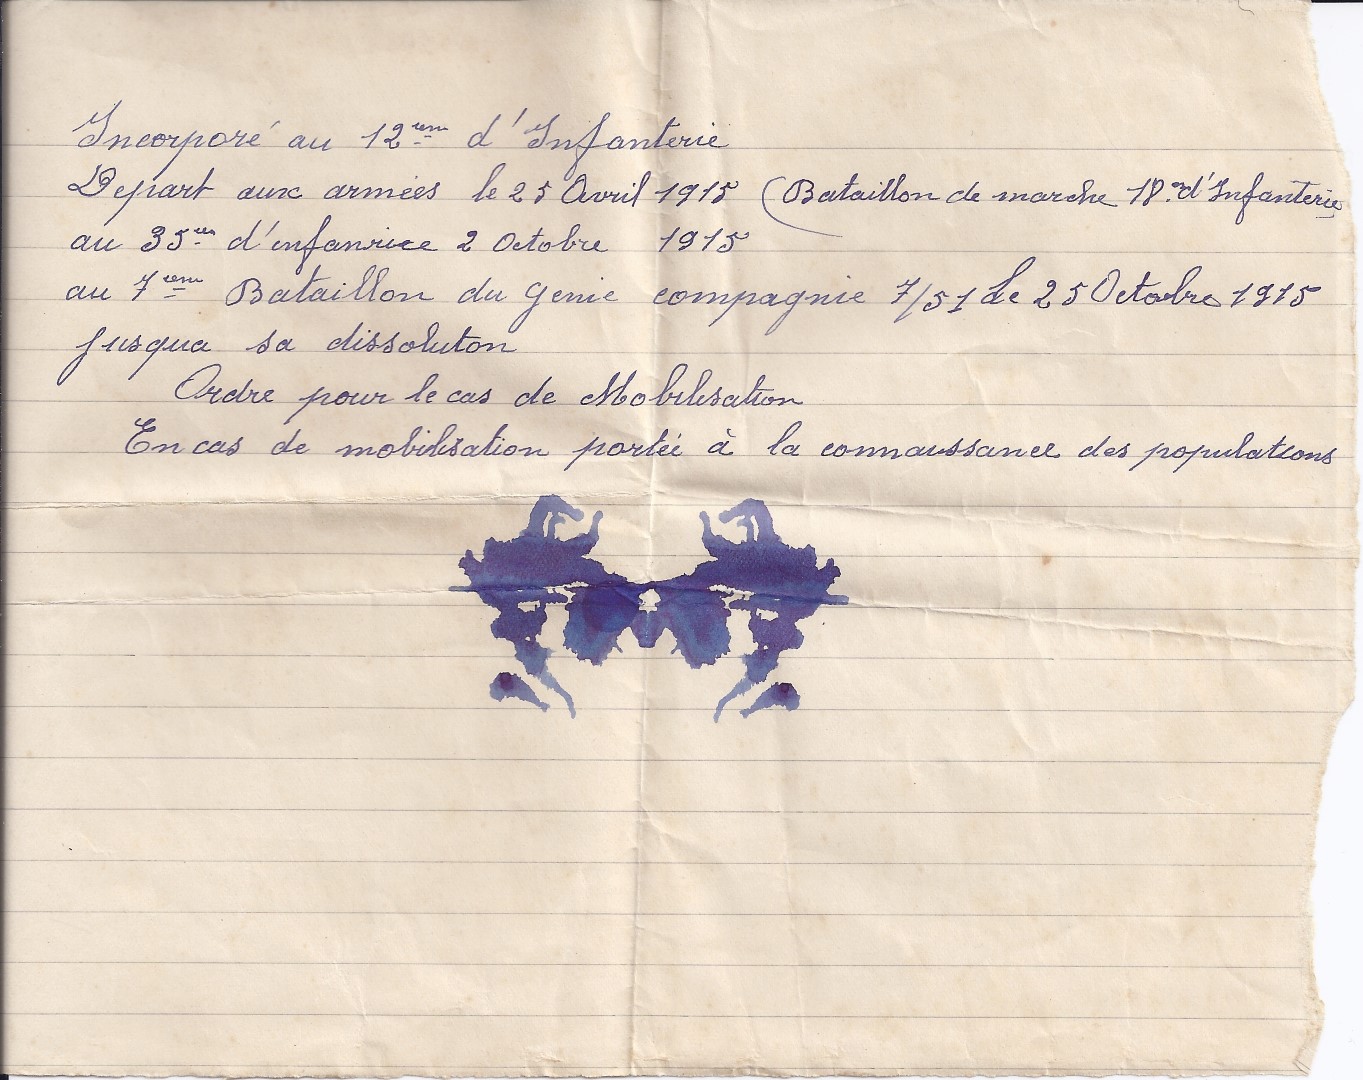 Incorporé au 12eme d'Infanterie
Depart aux armées le 25 Avril 1915 (Bataillon de marche 18e d'Infanterie
au 35em d'enfanrice 2 Octobre 1915
au 7eme Bataillon du Genie compagnie 7/51 Le 25 Octobre 1915
jusqua sa dissoluton
Ordre pour le cas de Mobilisation
En cas de mobilisation portée à la connaissance des populations